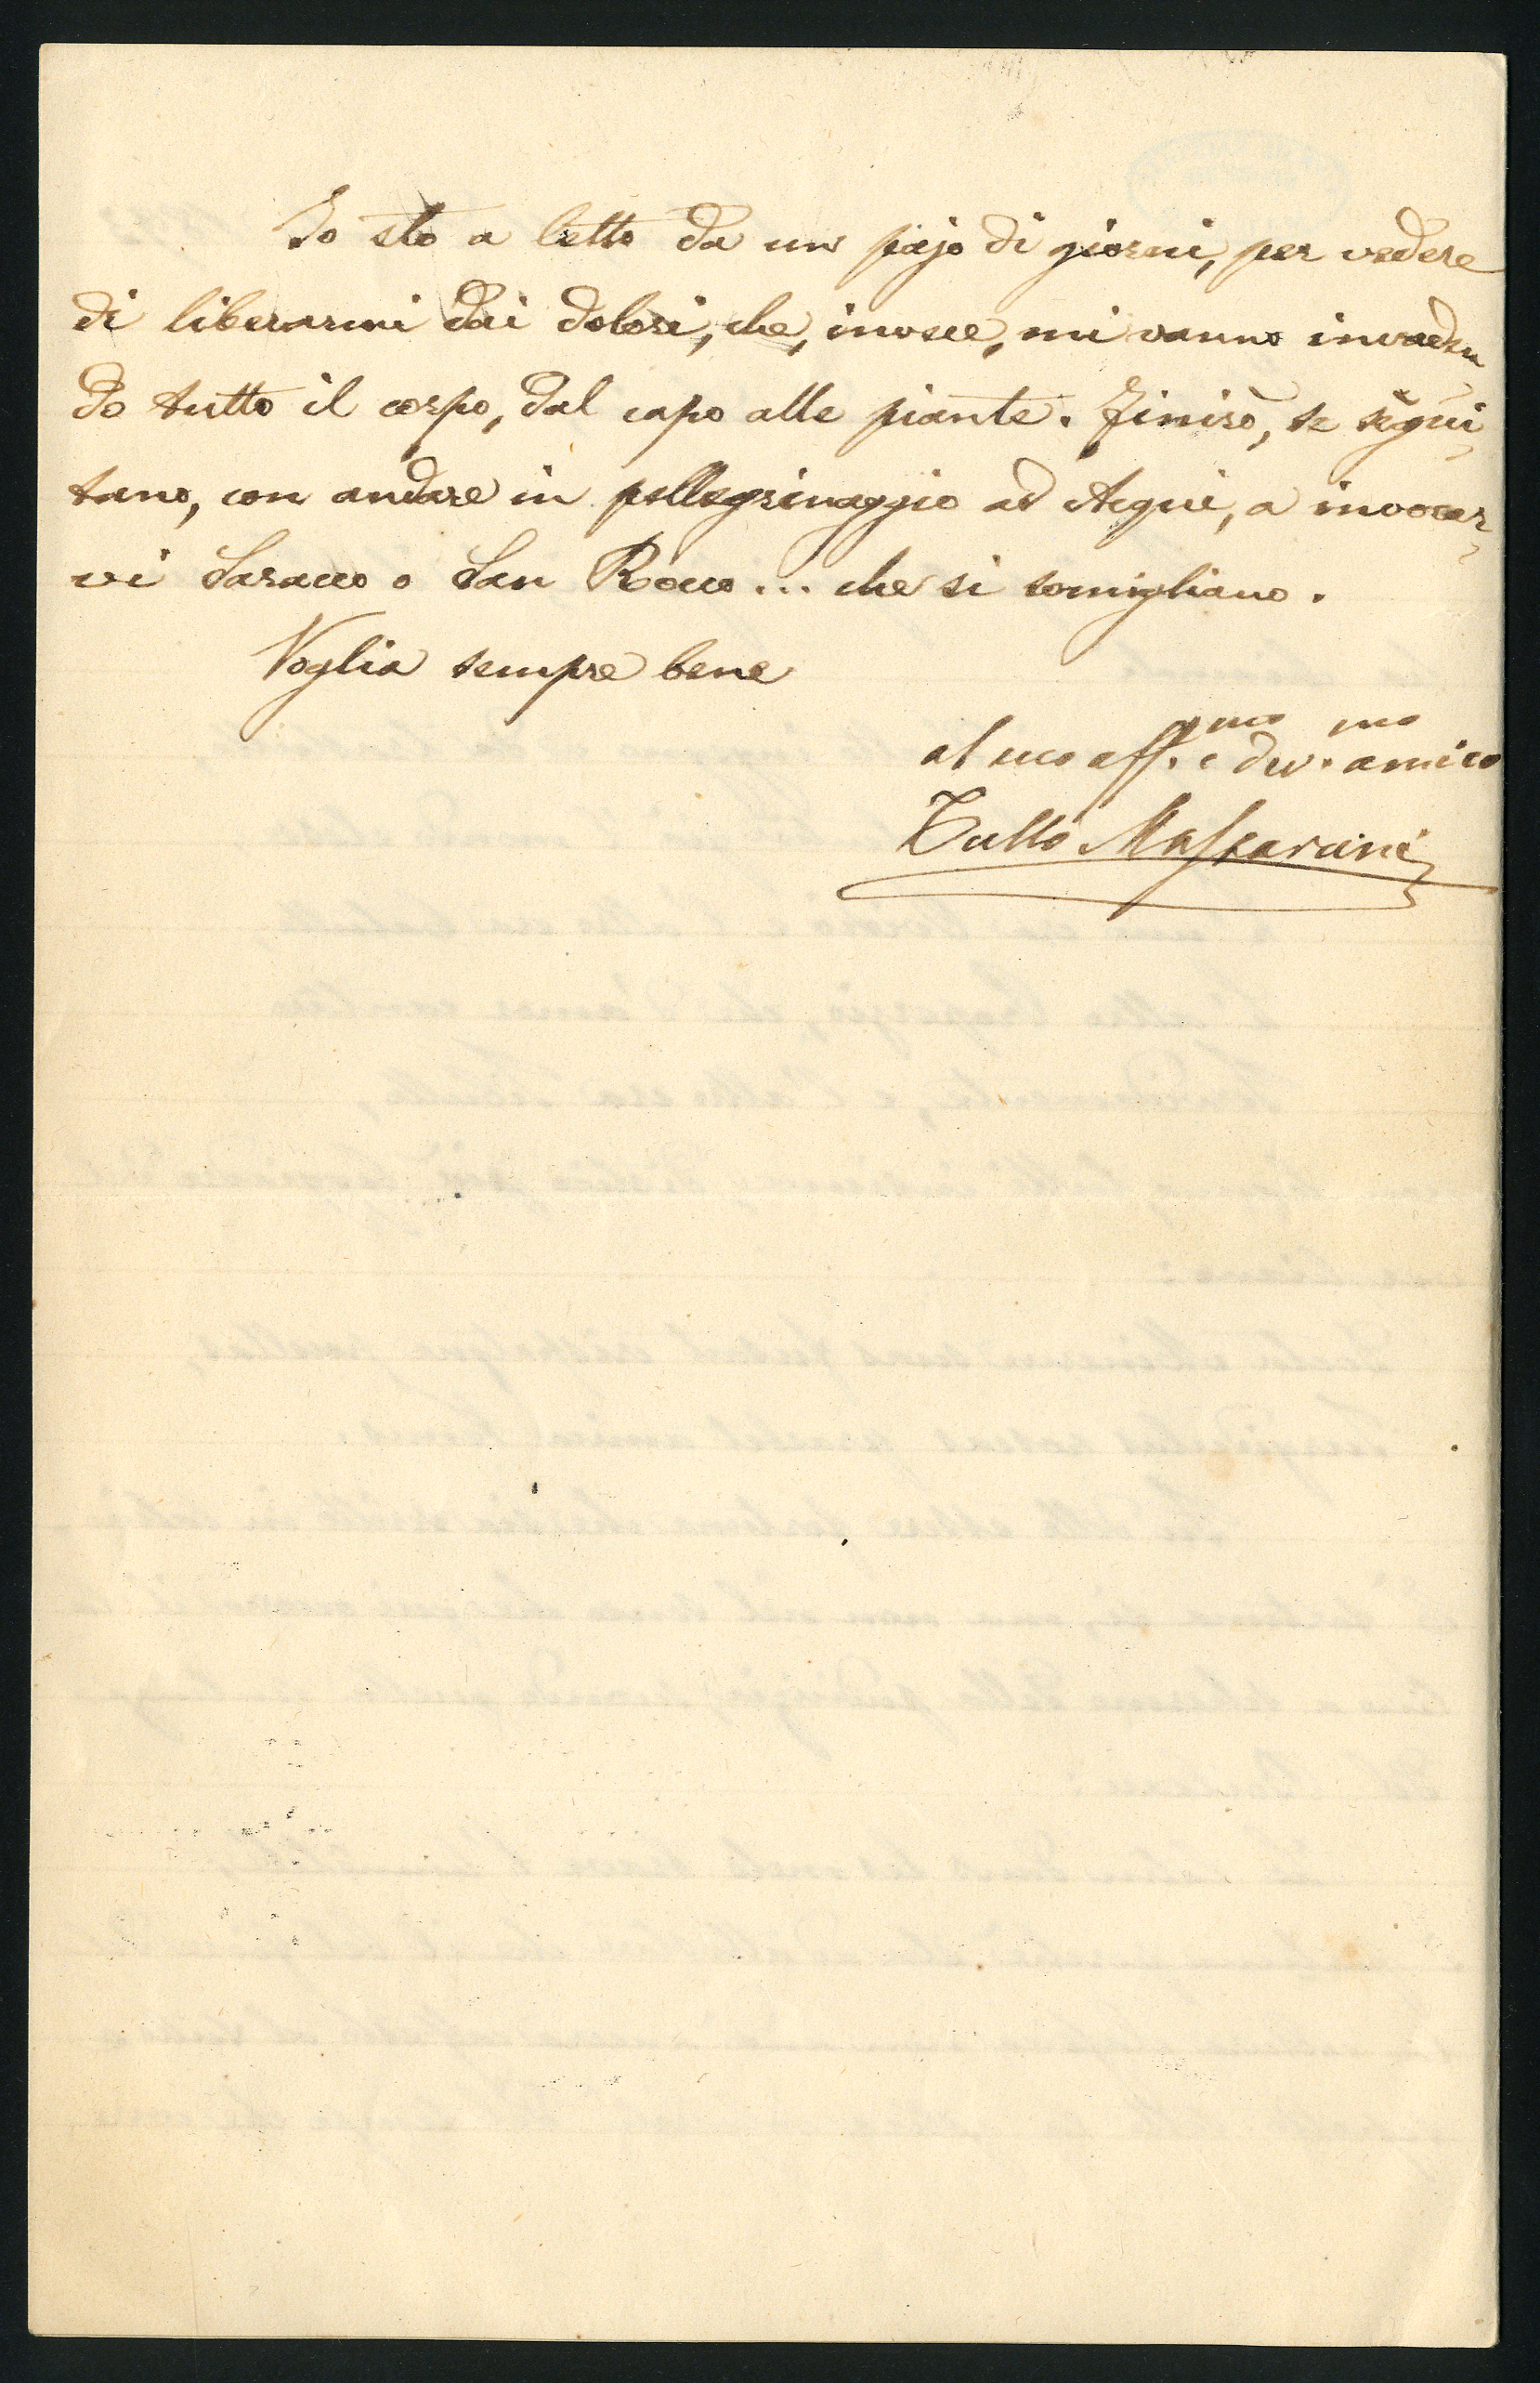 Io sto a letto da un pajo di giorni, per vedere
di liberarmi dai dolori, che, invece, mi vanno invaden
do tutto il corpo, dal capo alle piante. Finirò, se segui
tano, con andare in pellegrinaggio ad Acqui, a invocar
vi Saracco o San Rocco... che si somigliano.
Voglia sempre bene
al suo aff.mo e dev.mo amico
Tullo Massarani